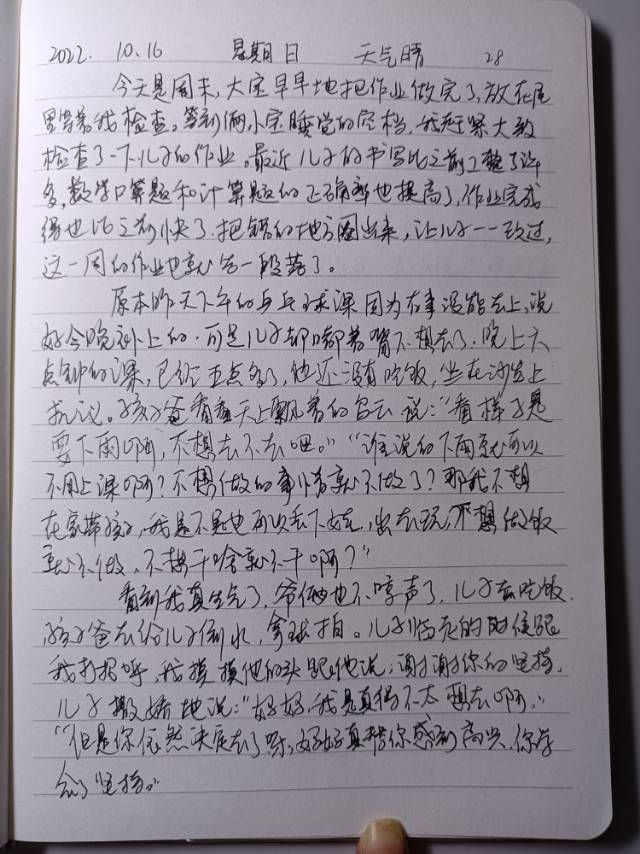 2022. 10.16 星期日 天气晴 28
今天是周末,大宝早早地把作业做完了,放在屋
里等着我检查。等到俩小宝睡觉的空档,我赶紧大致
检查了一下儿子的作业。最近儿子的书写比之前工整了许
多,数学口算题和计算题的正确率也提高了,作业完成
得也比之前快了。把错的地方圈出来,让儿子一一改过,
这一周的作业也就告一段落了。
原本昨天下午的乒乓球课因为有事没能去上,说
好今晚补上的.可是儿子却嘟着嘴不想去了.晚上六
点钟的课,已经五点多了,他还没有吃饭,坐在沙发上
抗议。孩子爸看看天上飘着的乌云说:“看样子是
要下雨啊,不想去不去吧。”“谁说的下雨就可以
不用上课啊?不想做的事情就不做了?那我不想
在家带孩子,我是不是也可以丢下娃,出去玩,不想做饭
就不做,不想干啥就不干啊?”
看到我真生气了,爷俩也不哼声了,儿子去吃饭.
孩子爸去给儿子倒水,拿球拍。儿子临走的时候跟
我打招呼,我摸摸他的头跟他说:谢谢你的坚持.
儿子撒娇地说:“妈妈,我是真得不太想去啊,”
“但是你依然决定去了呀,妈妈真替你感到高兴.你学
会了坚持。”